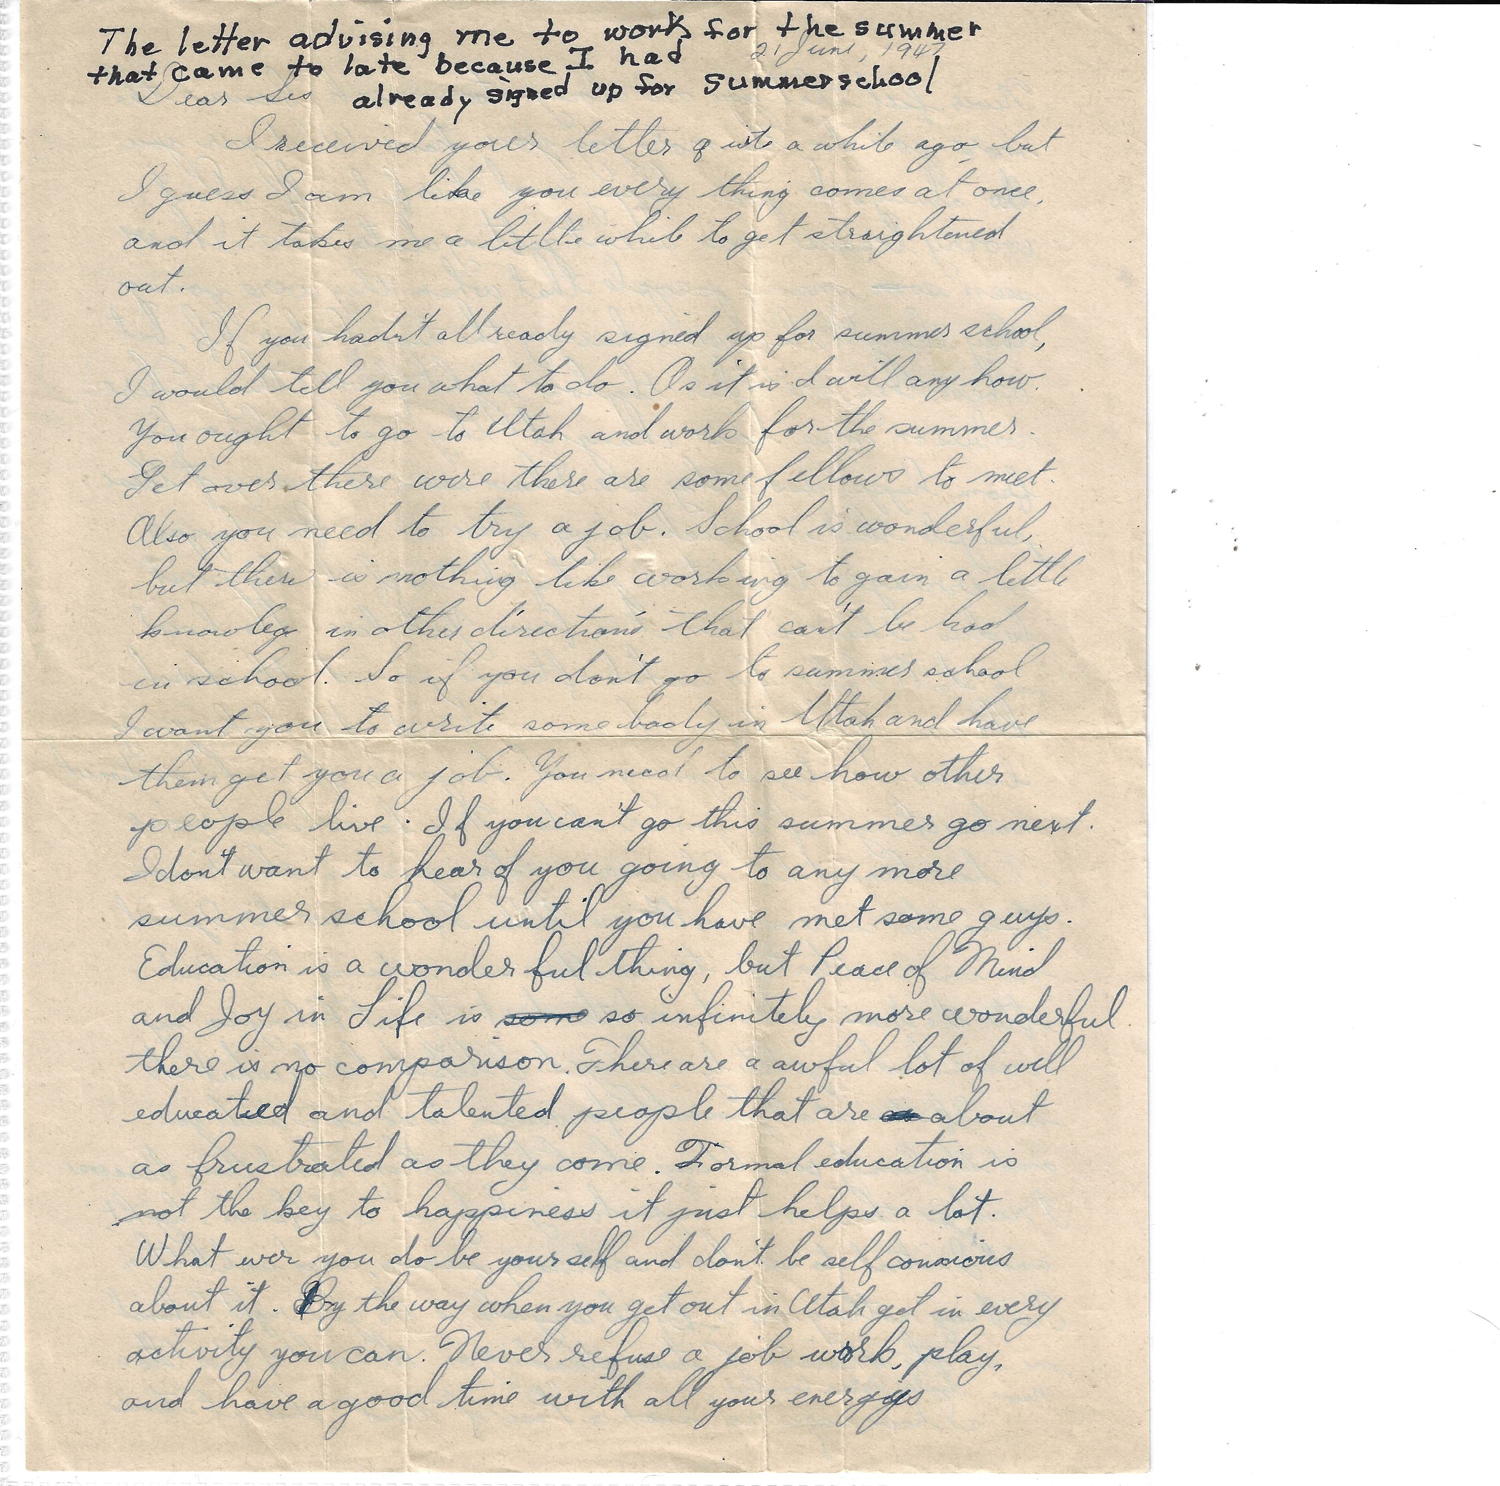 The letter advising me to work for the summer
that came to late because I had
21 June, 1947
Dear Sis already signed up for summerschool
I received your letter quite a while ago, but
I guess I am like you every thing comes at once,
and it takes me a little while to get straightened
out.
If you hadn't all ready signed up for summer school,
I would tell you what to do. As it is I will any how.
You ought to go to Utah and work for the summer.
Get over there were there are some fellows to meet.
Also you need to try a job. School is wonderful,
but there is nothing like working to gain a little
knowlege in other directions that can't be had
in school. So if you don't go to summer school
I want you to write some body in Utah and have
them get you a job. You need to see how other
people live. If you can't go this summer go next.
I don't want to hear of you going to any more
summer school until you have met some guys.
Education is a wonderful thing, but Peace of Mind
and Joy in Life is some so infinitely more wonderful
there is no comparison. There are a awful lot of well
educated and talented people that are about
as frustrated as they come. Formal education is
not the key to happiness it just helps a lot.
What ever you do be yourself and don't be self conscious
about it. By the way when you get out in Utah get in every
activity you can. Never refuse a job work, play,
and have a good time with all your energys